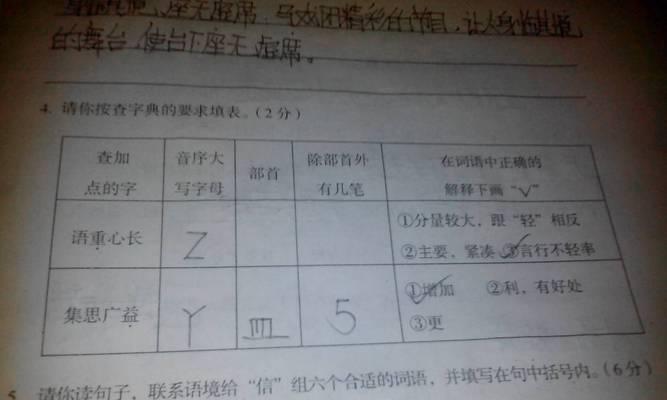 座无虚席,马戏团精彩的节目,让人身临其境
的舞台,使台下座无虚席。
4. 请你按查字典的要求填表。(2分)
查加点的字 音序大写字母 部首 除部首外有几笔 在词语中正确的解释下画“√”
语重心长 Z ①分量较大,跟“轻”相反
②主要、紧凑 ③言行不轻率
集思广益 Y 皿 5 ①增加 ②利,有好处
③更
5. 请你读句子,联系语境给“信”组六个合适的词语,并填写在句中括号内。(6分)